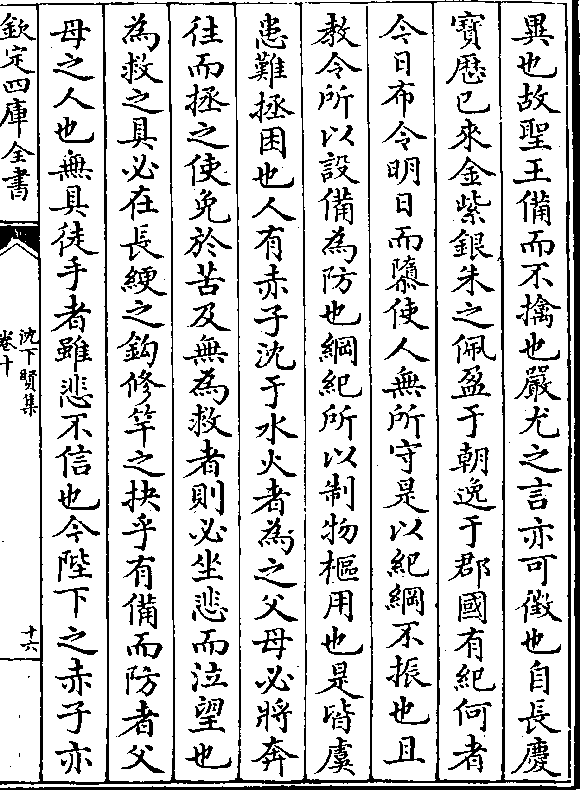 異也故聖王備而不擒也嚴尤之言亦可徵也自長慶
寳歴已來金紫銀朱之佩盈于朝逸于郡國有紀何者
今日布令明日而隳使人無所守是以紀綱不振也且
教令所以設備為防也綱紀所以制物樞用也是皆虞
患難拯困也人有赤子沈于水火者為之父母必將奔
往而拯之使免於苦及無為救者則必坐悲而泣望也
為救之具必在長綆之鈎修竿之抉乎有備而防者父
母之人也無具徒手者雖悲不信也今陛下之赤子亦
欽定四庫全書
沈下賢集
卷十
十六